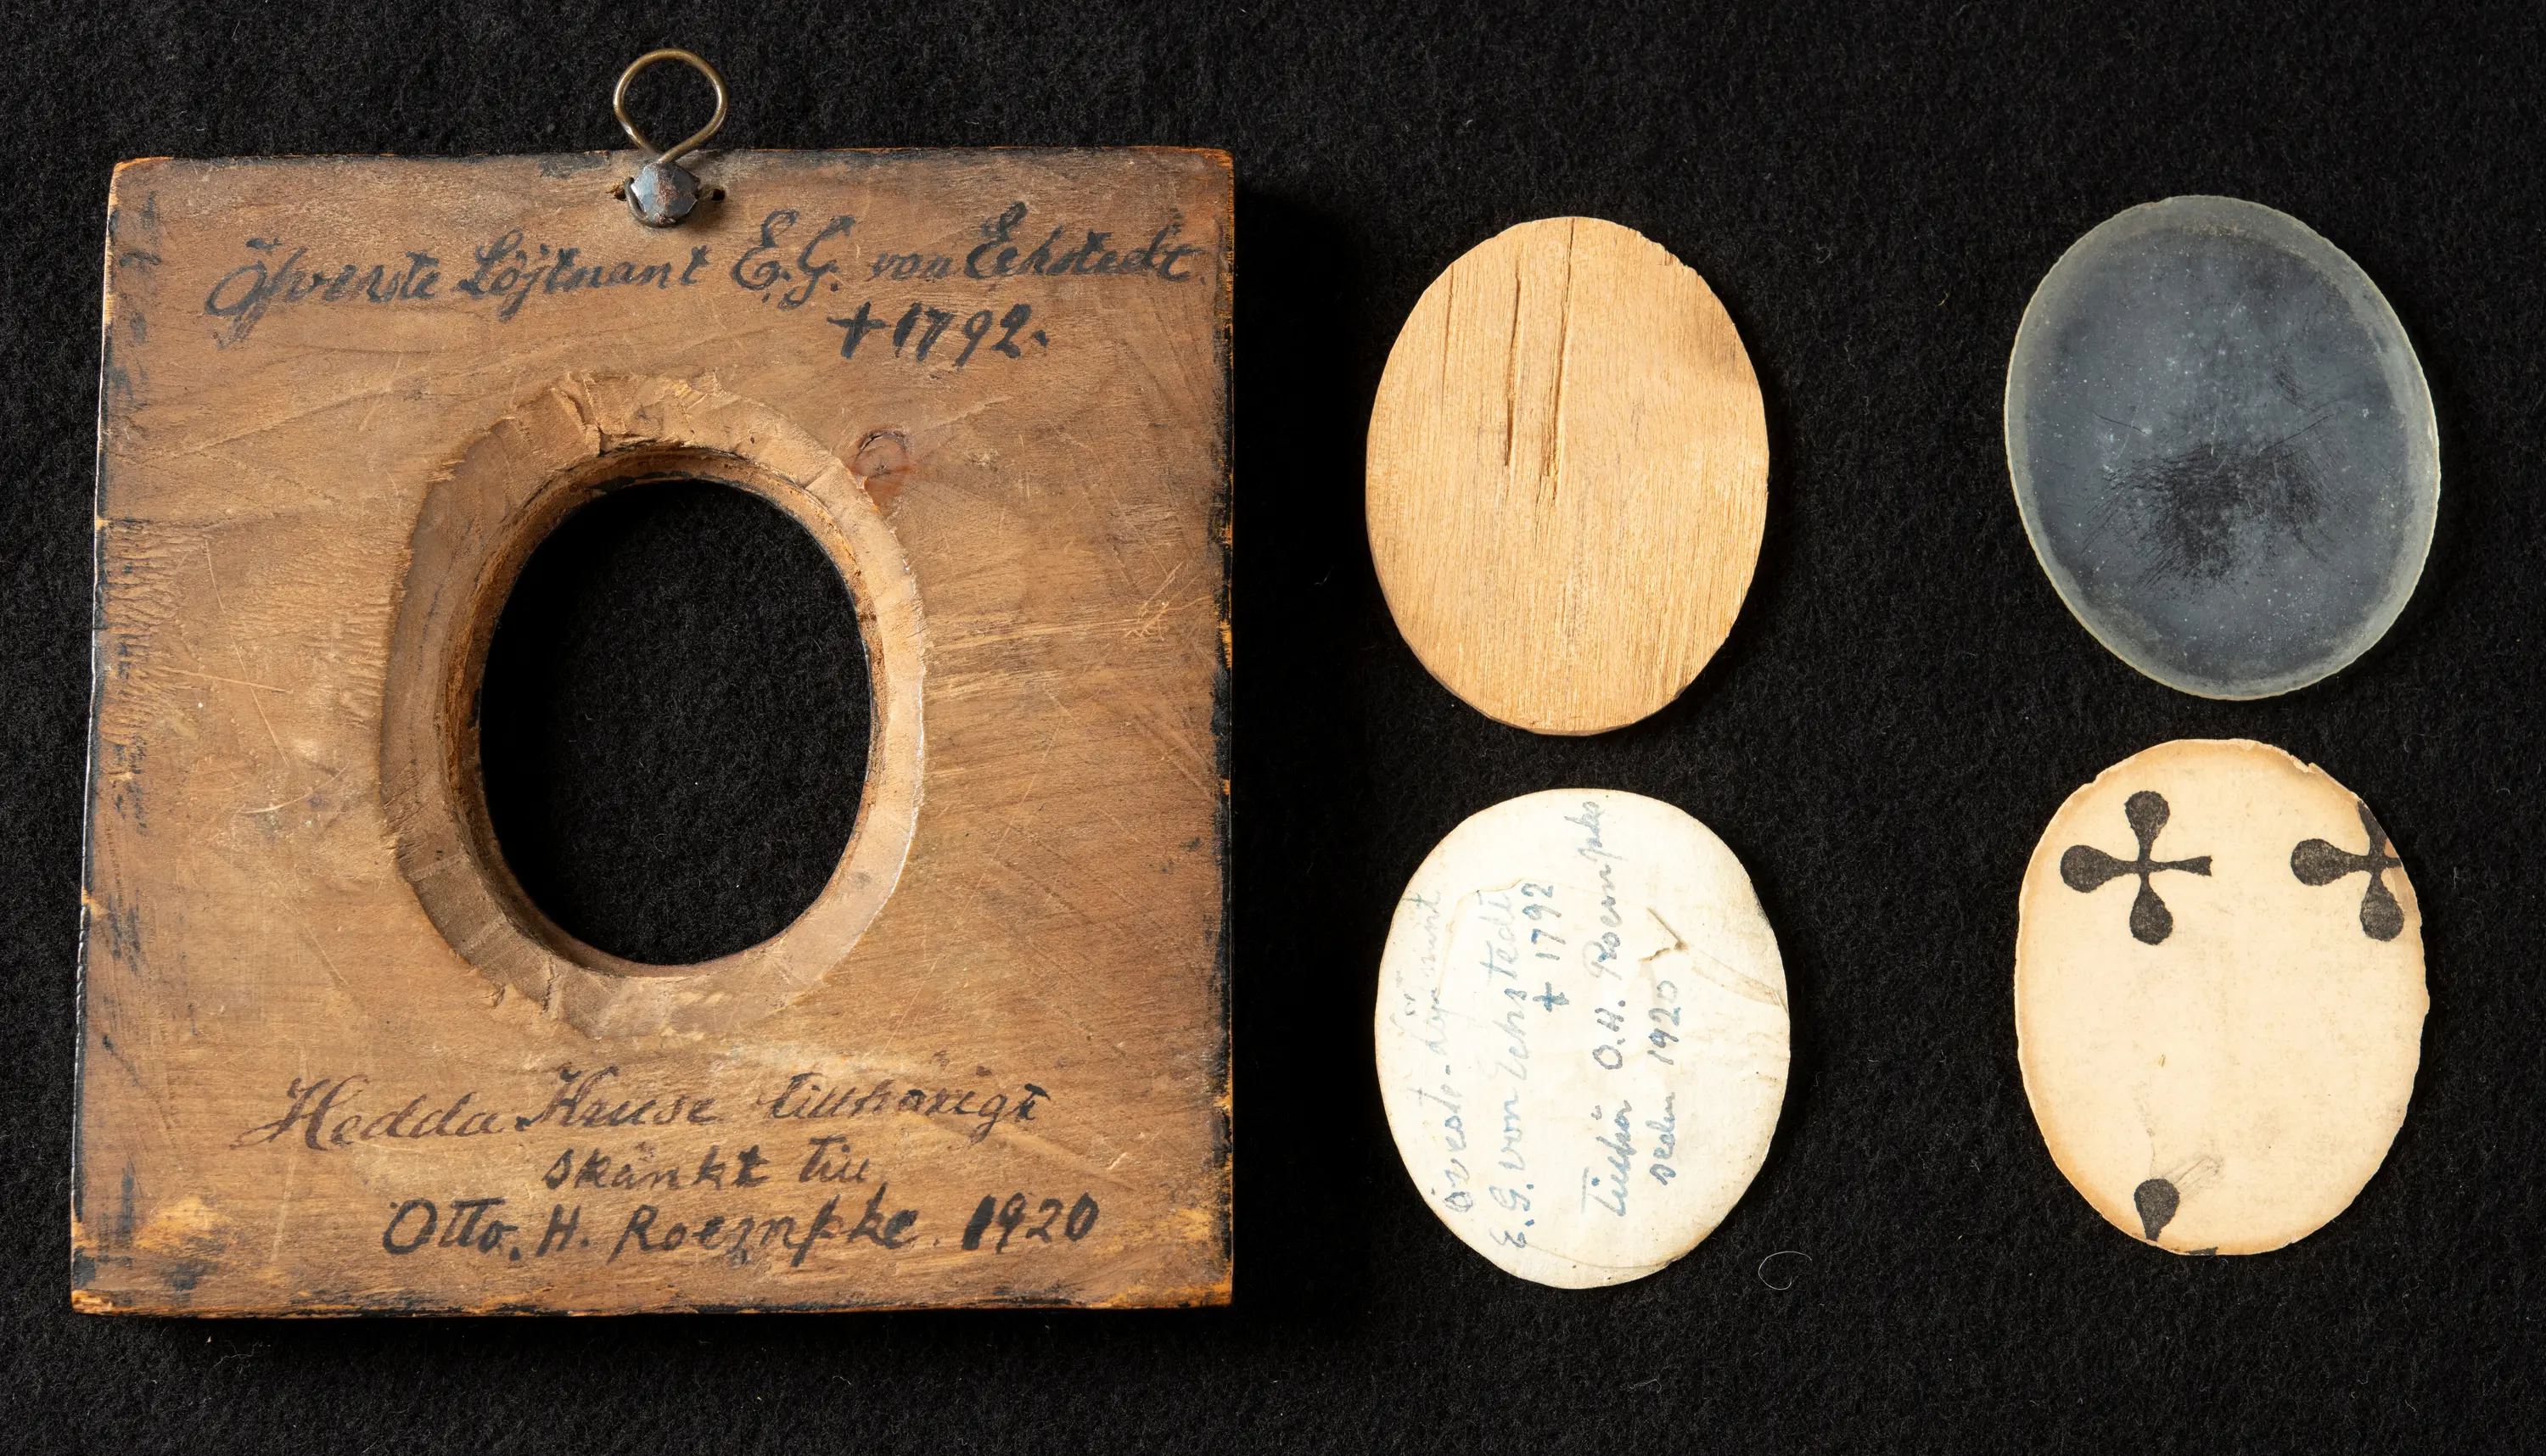 Öfverste Löjtnant E.G. von Eckstedt.
+ 1792.
Hedda Kruse tillhörigt
skänkt till
Otto. H. Roempke. 1920
överste-löjtnant
E.G. von Eckstedt
+ 1792
Tillhör O.H. Roempke
sedan 1920